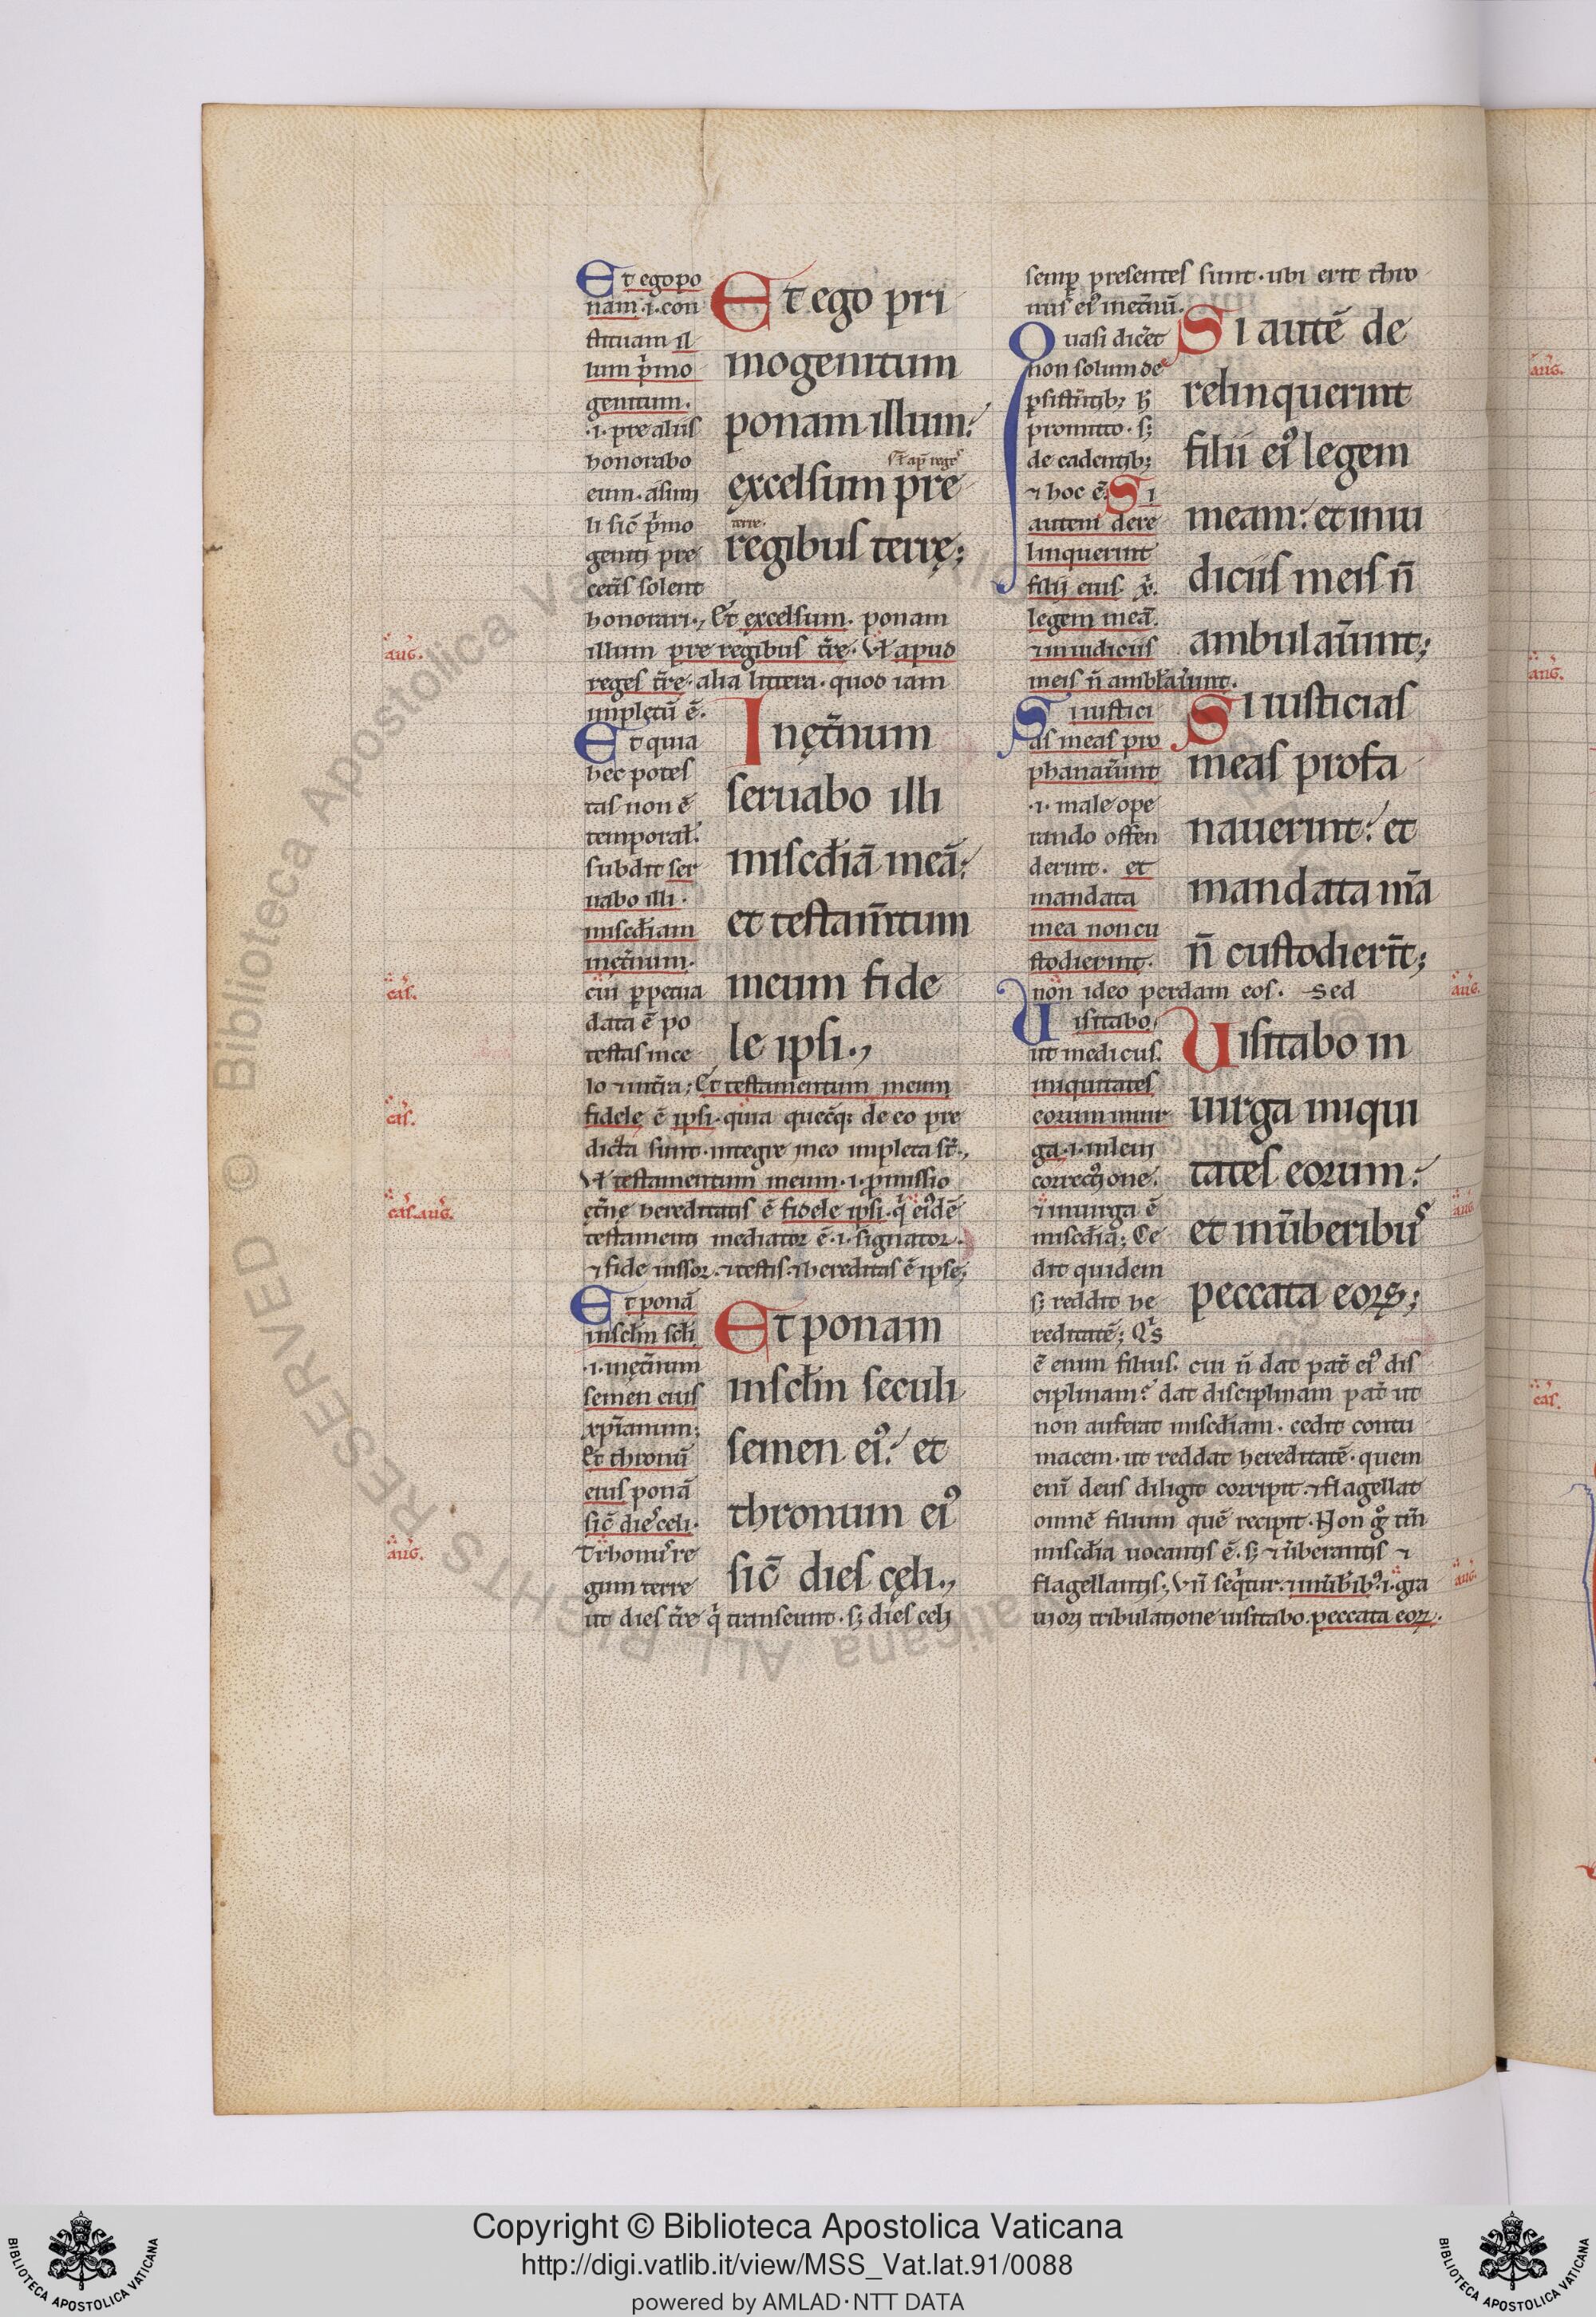 Et ego po
nam .i. con
stituam il
lum pͥmo
genitum.
.i. pre aliis
honorabo
eum. a simi
li sic̄ pͥmo
geniti pre
cet̄is solent
honorari., Et excelsum. ponam
illum pre regibus t̄re. Vł apud
reges t̄rę. alia littera. quod iam
impletū ē.
Et ego pri
mogenitum
ponam illum:
excelsum pre
regibus terrę;
Et quia
hec potes
tas non ē
temporał.
subdit ser
uabo illi.
misc̄diam
inęt̄num.
cui ꝑpetua
data ē po
testas in ce
lo ⁊ in t̄ra; Et testamentum meum
fidele ē ipsi. quia quecq; de eo pre
dicta sunt. integre in eo impleta st̄.,
Vł testamentum meum .i. ꝓmissio
et̄nę hereditatis ē fidele ipsi. qͥ eiꝰdē
testamenti mediator ē .i. signator.
⁊ fide iussor. ⁊ testis. ⁊ hereditas ē ipse;
In ęt̄num
seruabo illi
misc̄diā meā:
et testam̄tum
meum fide
le ipsi.,
Et ponā
in sc̄lm sc̄li
.i. in ęt̄num
semen eius
xp̄ianum;
Et thronū
eius ponā
sic̄ dies celi.
gum terre
ut dies t̄re qͥ transeunt. s; dies celi
Et ponam
in sc̄lm seculi
semen eiꝰ: et
thronum eiꝰ
sic̄ dies cęli.,
semꝑ presentes sunt. ubi erit thro
nus eiꝰ in et̄nū.
Quasi dic̄et
non solum de
ꝑsist̄ntib; h̄
promitto. s;
de cadentib;
⁊ hoc ē. Si
autem dere
linquerint
filii eius x̄.
legem meā.
⁊ in iudiciis
meis n̄ ambłaūunt.
Si autē de
relinquerint
filii eiꝰ legem
meam: et in iu
diciis meis n̄
ambulaūunt;
Si iustici
as meas pro
phanaūunt
.i. male ope
rando offen
derint. et
mandata
mea non cu
stodierint.
non ideo perdam eos. Sed
Si iusticias
meas profa
nauerint: et
mandata m̄a
n̄ custodierīt;
Uisitabo
ut medicus.
iniquitates
eorum in uir
ga .i. in leui
correctione.
⁊ in uirga ē
misc̄dia; Ce
dit quidem
s; reddit he
reditatē; Qͥs
ē enim filius. cui n̄ dat pat̄ eiꝰ dis
ciplinam? dat disciplinam pat̄ ut
non auferat misc̄diam. cedit contu
macem. ut reddat hereditatē. quem
enī deus diligit corripit. ⁊ flagellat
omnē filium quē recipit. Non gͦ tm̄
misc̄dia uocantis ē. s; ⁊ ūberantis ⁊
flagellantis; Vn̄ seqͥtur. ⁊ in ūb̄ibꝰ .i. gra
uiori tribulatione uisitabo. peccata eoꝝ.
Uisitabo in
uirga iniqui
tates eorum:
et in ūberibus
peccata eoꝝ;
aug.
cas.
cas.
cas. aug.
aug.
aug.
aug.
aug.
aug.
aug.
cas.
Copyright © Biblioteca Apostolica Vaticana
http://digi.vatlib.it/view/MSS_Vat.lat.91/0088
powered by AMLAD·NTT DATA
BIBLIOTECA APOSTOLICA VATICANA
BIBLIOTECA APOSTOLICA VATICANA